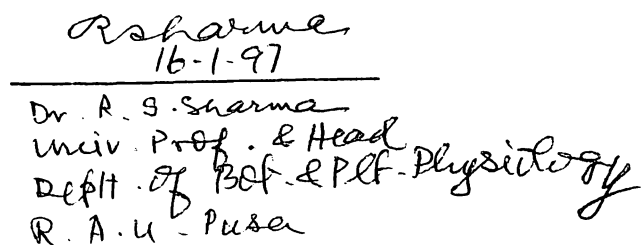 Rsharma
16-1-97
Dr. R. S. Sharma
Univ. Prof. & Head
Deptt. of Bot. & Plt. Physiology
R. A. U - Pusa